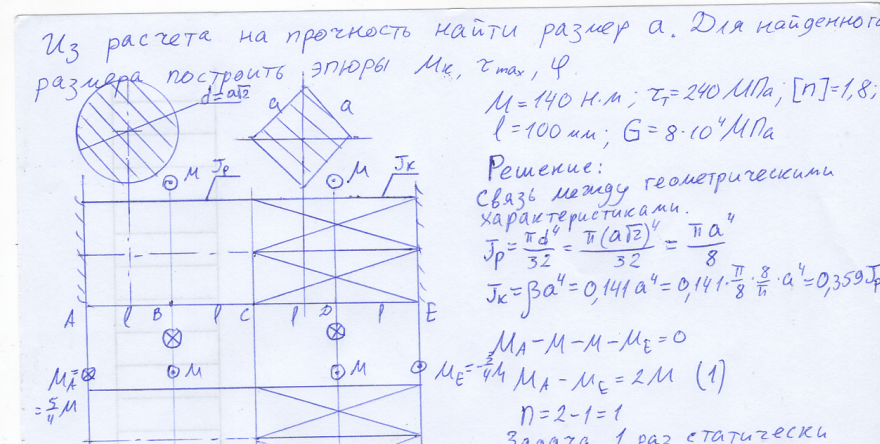 Из расчета на прочность найти размер a. Для найденного
размера построить эпюры Mк, τmax, φ.
M = 140 Н·м; τт = 240 МПа; [n] = 1,8;
l = 100 мм; G = 8·10⁴ МПа
d = a√2
a a
M M
Jp Jк
Решение:
Связь между геометрическими
характеристиками.
Jp = πd⁴/32 = π(a√2)⁴/32 = πa⁴/8
Jк = βa⁴ = 0,141a⁴ = 0,141·π/8·8/π·a⁴ = 0,359Jp
A l B l C l D l E
MA − M − M − ME = 0
MA = 5/4 M
M M
ME = -3/4 M
MA − ME = 2M (1)
n = 2 − 1 = 1
Задача 1 раз статически